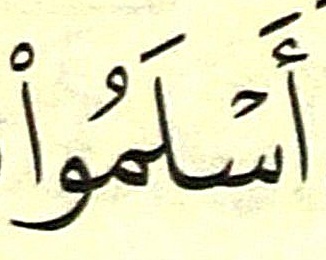 أَسۡلَمُواْ